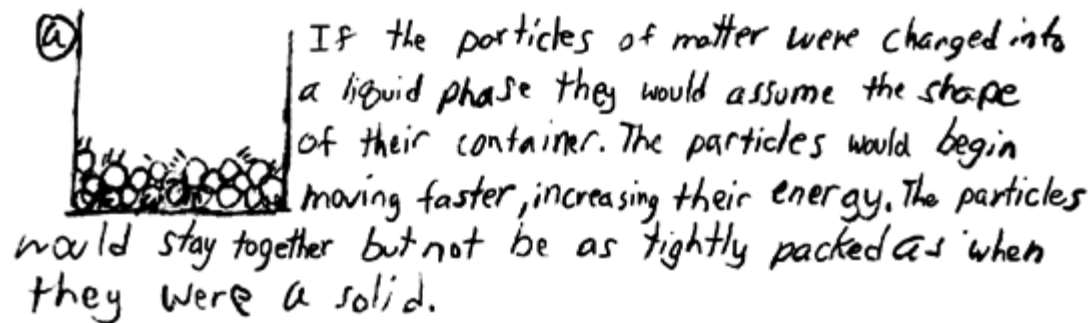 a
If the particles of matter were changed into
a liquid phase they would assume the shape
of their container. The particles would begin
moving faster, increasing their energy. The particles
would stay together but not be as tightly packed as when
they were a solid.